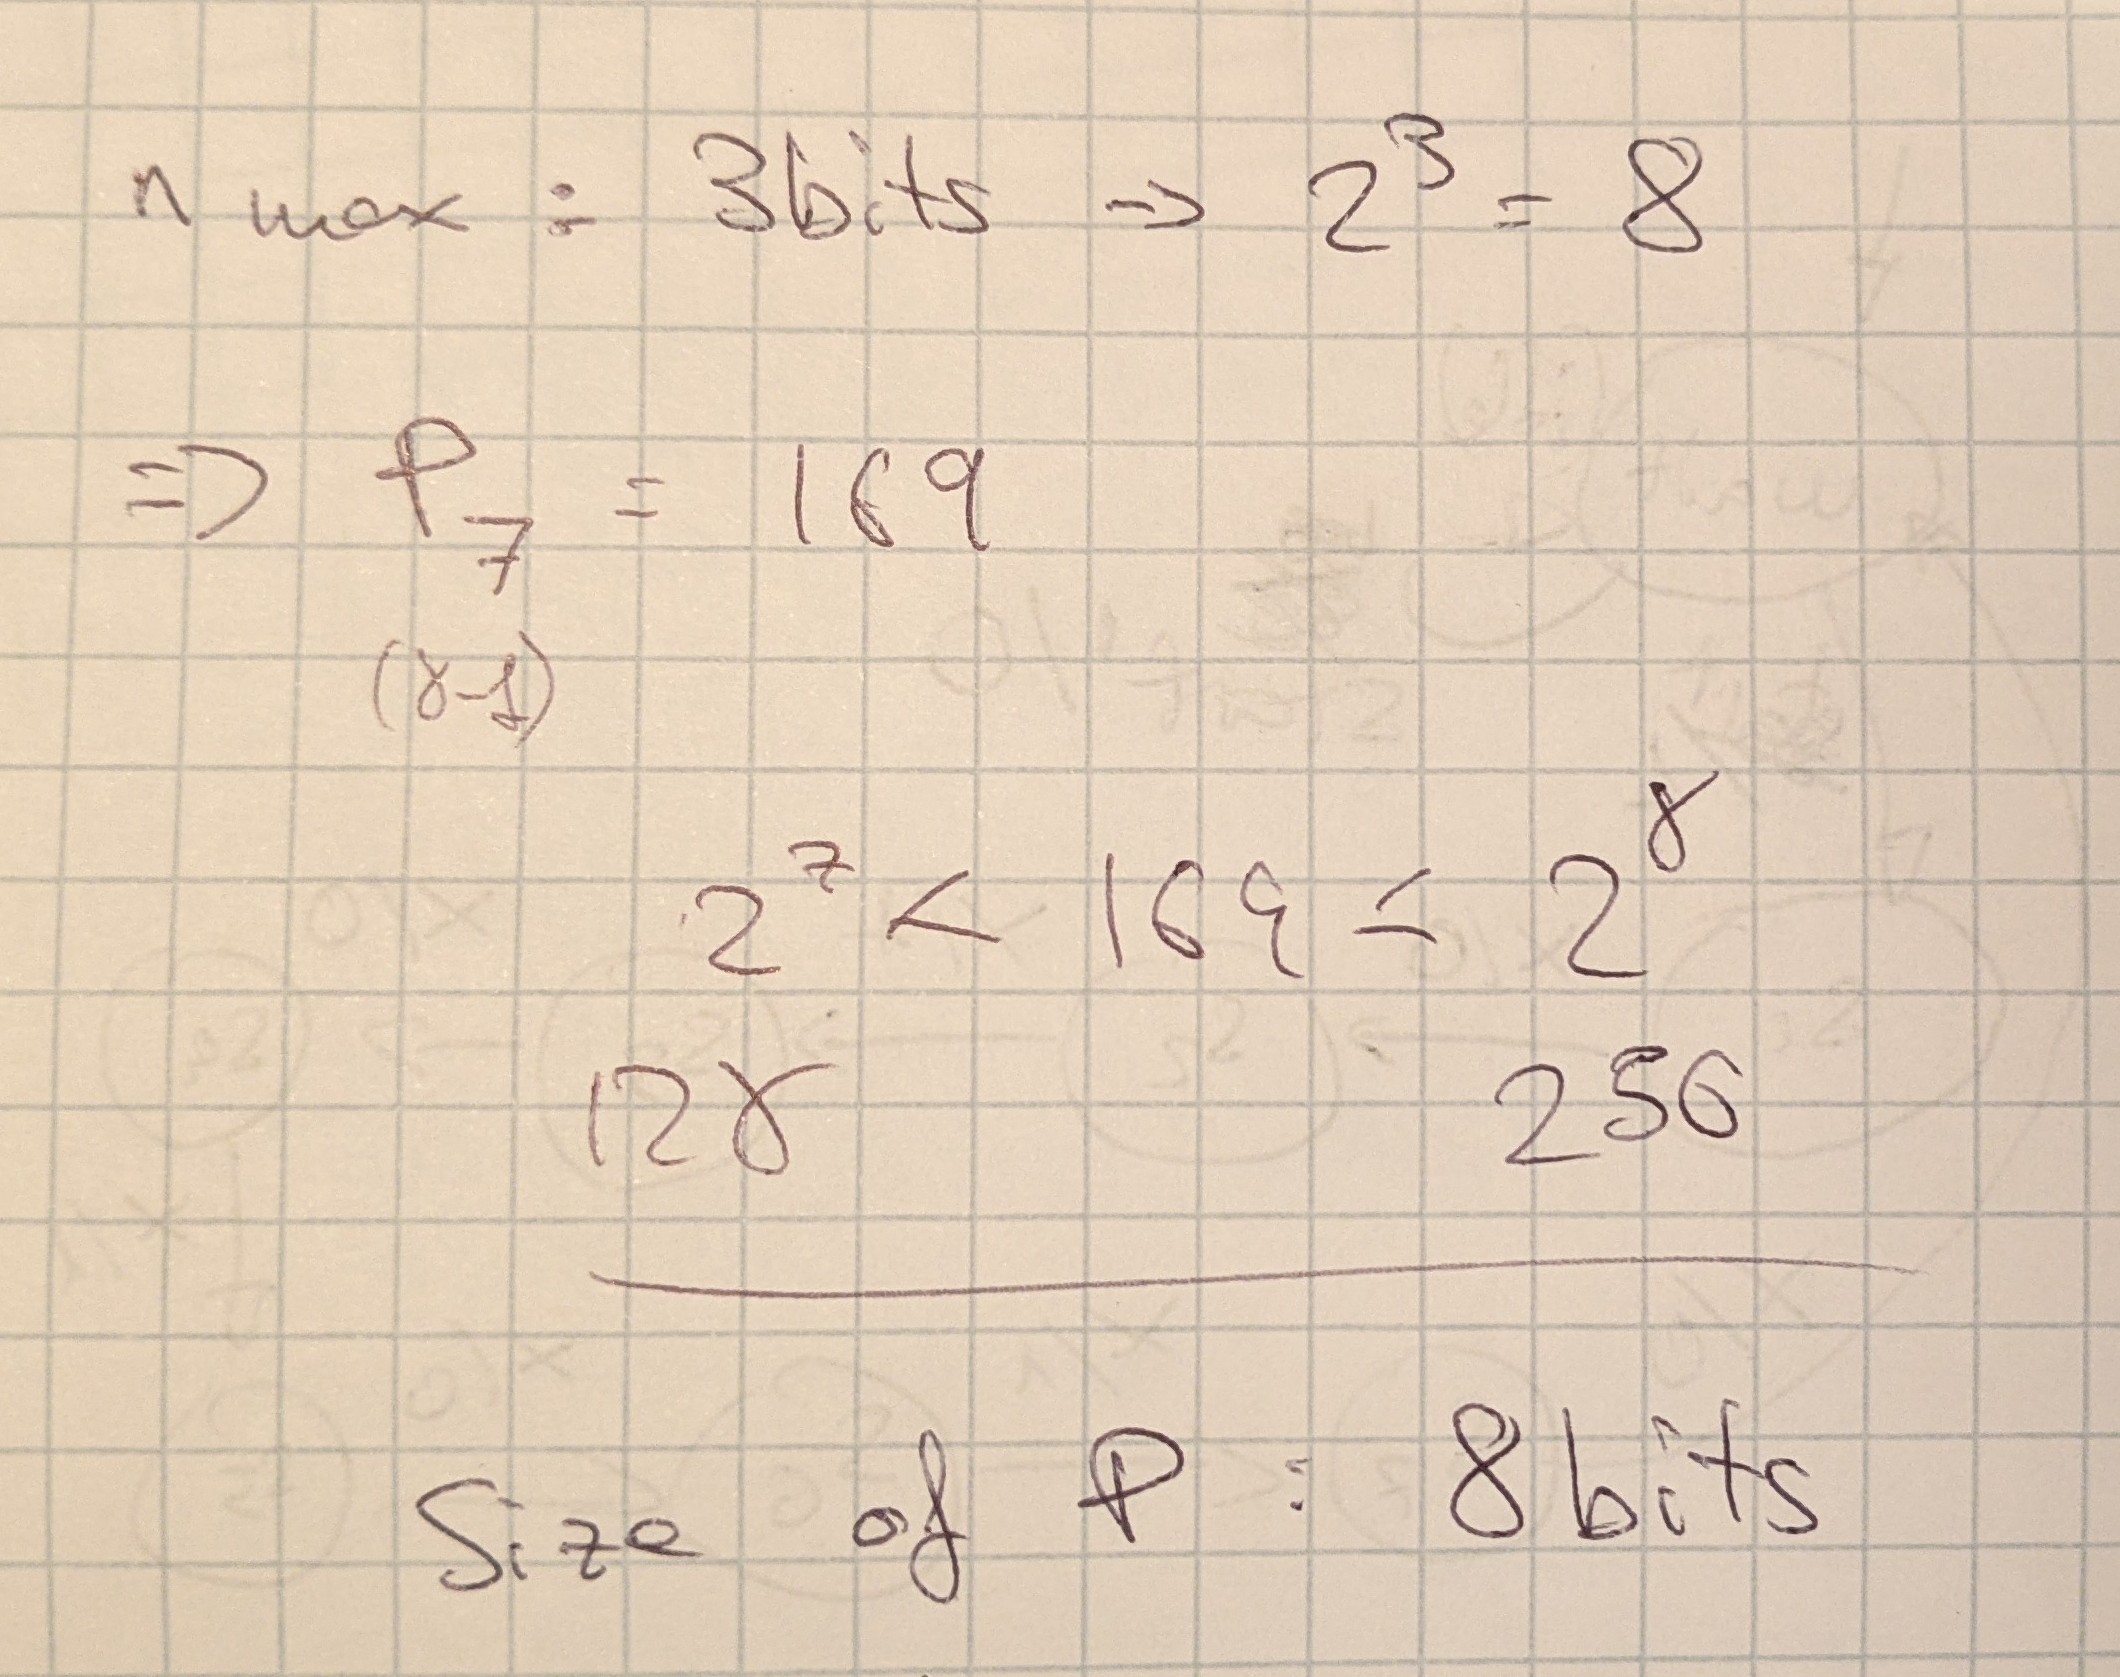 n max : 3bits => 2³ = 8
=> P₇ = 169
(8-1)
2⁷ < 169 ≤ 2⁸
128 256
Size of P : 8bits